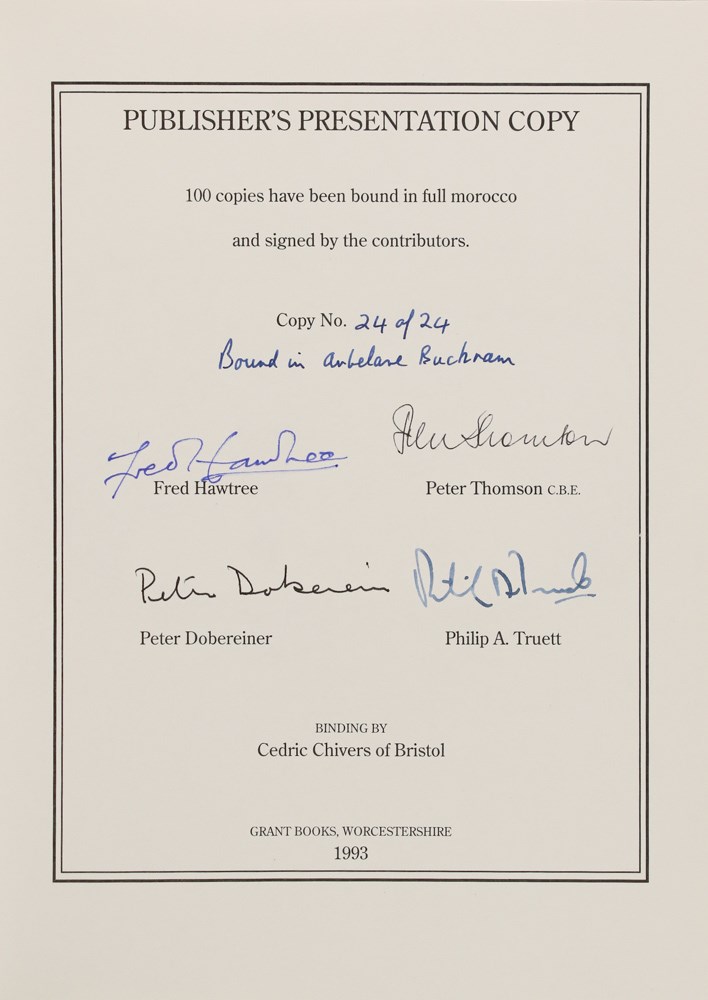 PUBLISHER'S PRESENTATION COPY
100 copies have been bound in full morocco
and signed by the contributors.
Copy No. 24 of 24
Bound in Arbelave Buckram
Fred Hawtree
Peter Thomson
Fred Hawtree
Peter Thomson C.B.E.
Peter Dobereiner
Philip A. Truett
Peter Dobereiner
Philip A. Truett
BINDING BY
Cedric Chivers of Bristol
GRANT BOOKS, WORCESTERSHIRE
1993